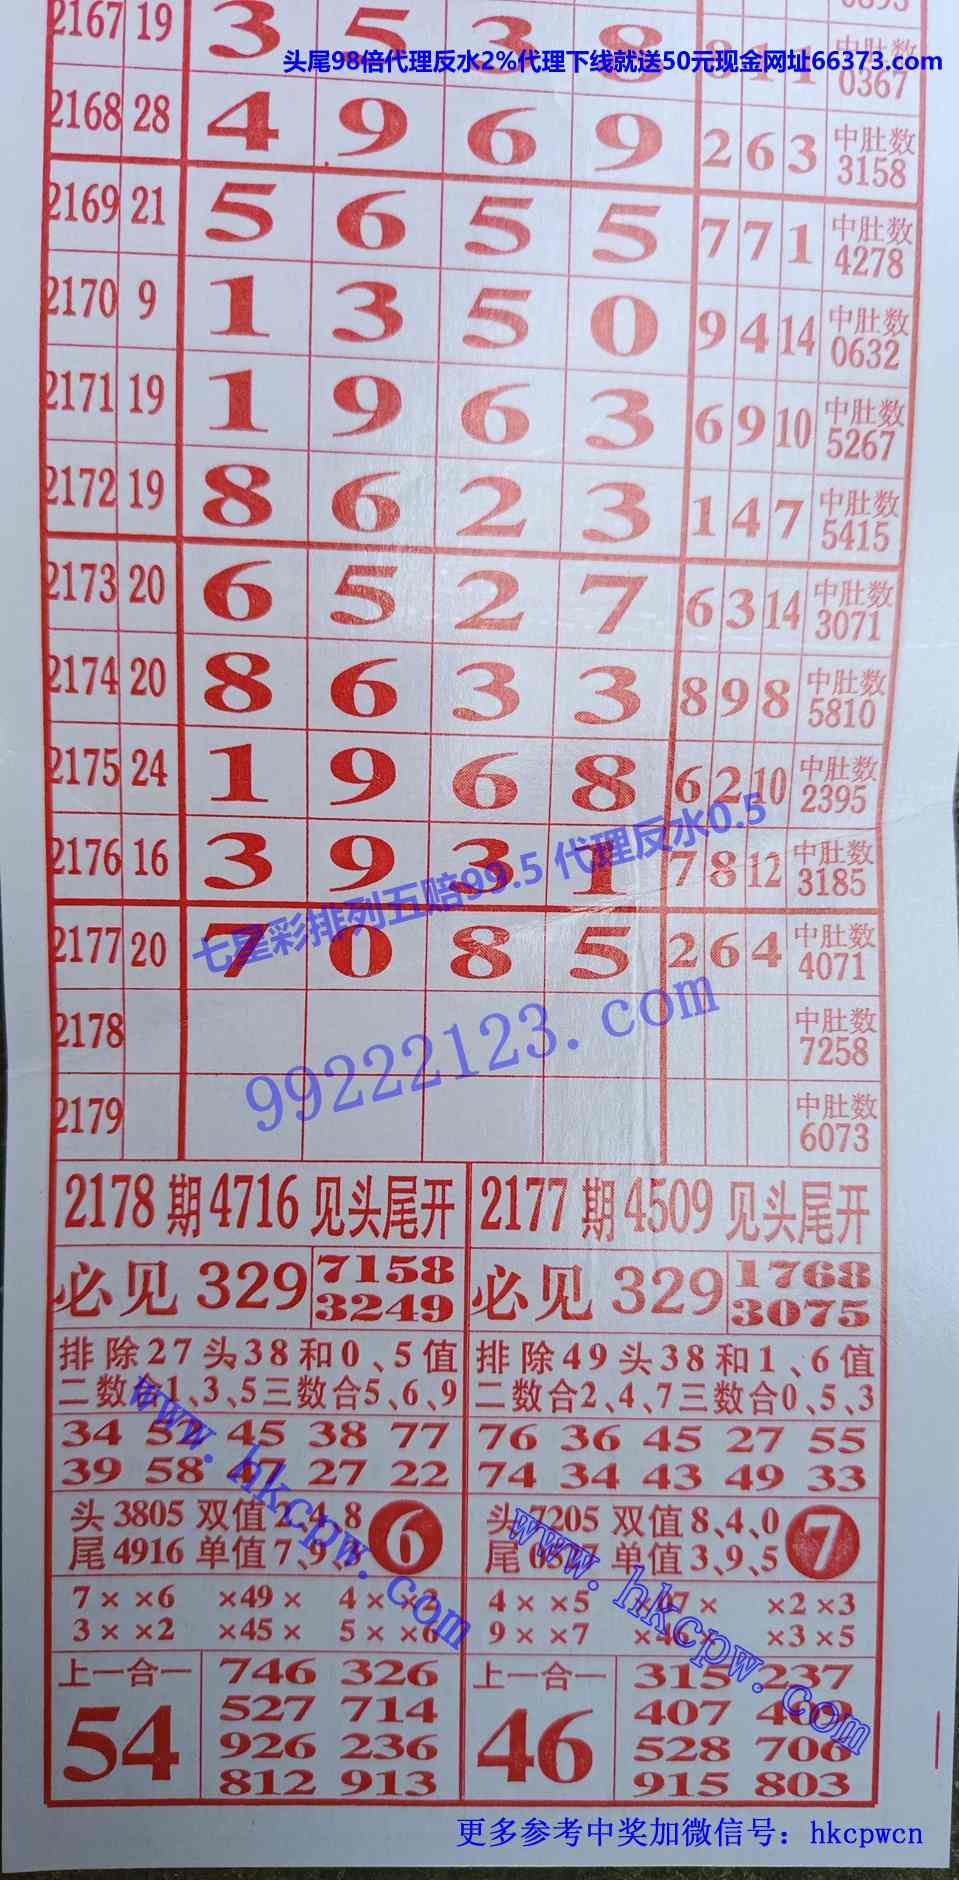 0893
2167 19 3 5 3 8 8 1 1 中肚数 0367
头尾98倍代理反水2%代理下线就送50元现金网址66373.com
2168 28 4 9 6 9 2 6 3 中肚数 3158
2169 21 5 6 5 5 7 7 1 中肚数 4278
2170 9 1 3 5 0 9 4 14 中肚数 0632
2171 19 1 9 6 3 6 9 10 中肚数 5267
2172 19 8 6 2 3 1 4 7 中肚数 5415
2173 20 6 5 2 7 6 3 14 中肚数 3071
2174 20 8 6 3 3 8 9 8 中肚数 5810
2175 24 1 9 6 8 6 2 10 中肚数 2395
2176 16 3 9 3 1 7 8 12 中肚数 3185
七星彩排列五赔99.5 代理反水0.5
2177 20 7 0 8 5 2 6 4 中肚数 4071
2178 中肚数 7258
99222123.com
2179 中肚数 6073
2178期4716见头尾开
必见329 7158
3249
排除27头38和0、5值
二数合1、3、5三数合5、6、9
34 52 45 38 77
39 58 47 27 22
头3805 双值2、4、8
尾4916 单值7、9、
6
7×× 6 ×49× 4××
3××2 ×45× 5××6
上一合一
54
746 326
527 714
926 236
812 913
www.hkcpw.com
2177期4509见头尾开
必见329 1768
3075
排除49头38和1、6值
二数合2、4、7三数合0、5、3
76 36 45 27 55
74 34 43 49 33
头7205 双值8、4、0
尾 单值3、9、5
7
4××5 ×47× ××2×3
9××7 ×46× ××3×5
上一合一
46
315 237
407 409
528 706
915 803
www.hkcpw.com
更多参考中奖加微信号：hkcpwcn